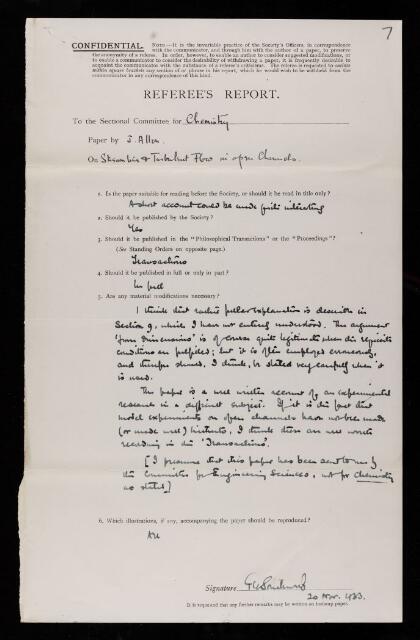 7
CONFIDENTIAL. NOTE.—It is the invariable practice of the Society's Officers, in correspondence
with the communicator, and through him with the author of a paper, to preserve
the anonymity of a referee. In order, however, to enable an author to consider suggested modifications, or
to enable a communicator to consider the desirability of withdrawing a paper, it is frequently desirable to
acquaint the communicator with the substance of a referee's criticisms. The referee is requested to enclose
within square brackets any section of or phrase in his report, which he would wish to be withheld from the
communicator in any correspondence of this kind.
REFEREE'S REPORT.
To the Sectional Committee for Chemistry
Paper by J. Allen.
On Streamline & Turbulent Flow in open Channels.
1. Is the paper suitable for reading before the Society, or should it be read in title only?
A short account could be made quite interesting
2. Should it be published by the Society?
Yes
3. Should it be published in the "Philosophical Transactions" or the "Proceedings"?
(See Standing Orders on opposite page.)
Transactions
4. Should it be published in full or only in part?
In full
5. Are any material modifications necessary?
I think that rather fuller explanation is desirable in
Section 9, which I have not entirely understood. The argument
'from dimensions' is of course quite legitimate when the requisite
conditions are fulfilled; but it is often employed erroneously,
and therefore should, I think, be stated very carefully when it
is used.
This paper is a well written account of an experimental
research in a difficult subject. If it is the fact that
model experiments on open channels have not been made
(or made well) hitherto, I think these are well worth
recording in the 'Transactions'.
[I presume that this paper has been sent to me by
the Committee for Engineering Sciences, not for Chemistry
as stated]
6. Which illustrations, if any, accompanying the paper should be reproduced?
All
Signature
20 Nov. 1933.
It is requested that any further remarks may be written on foolscap paper.